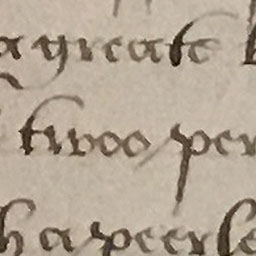 a greate
twoo per
h a peerle